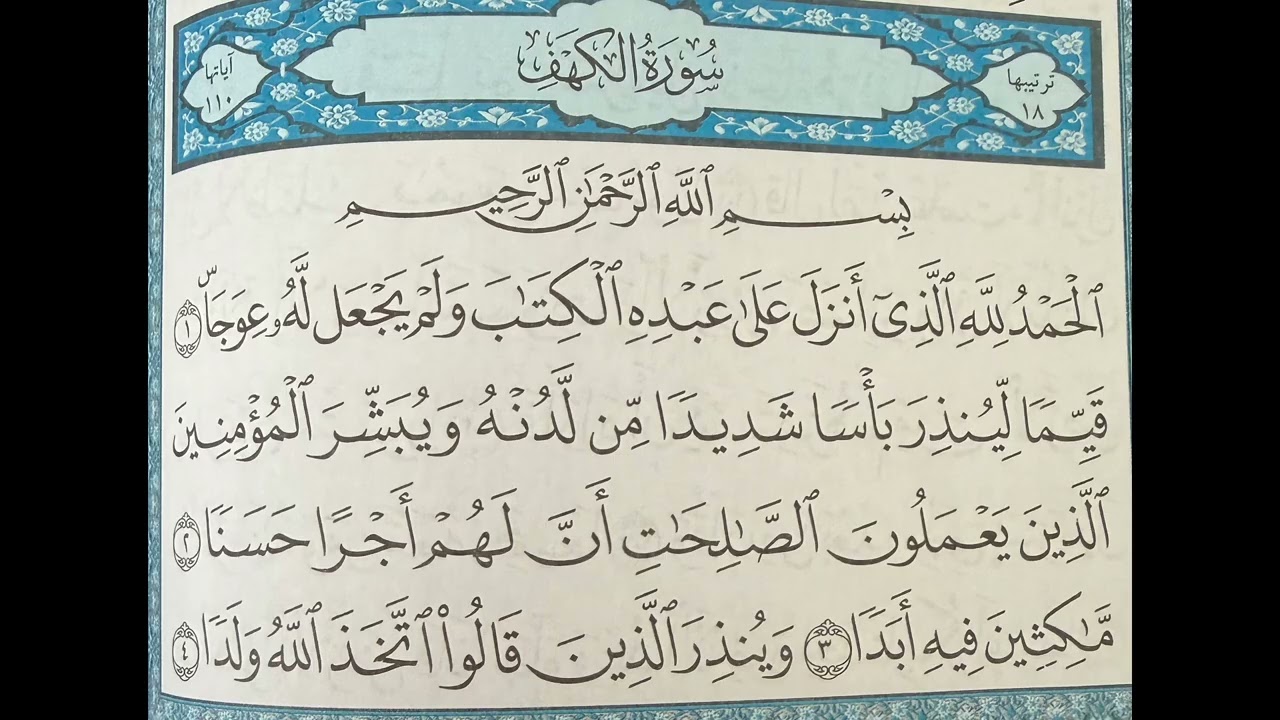 ترتيبها
١٨
سُورَةُ الكَهْفِ
آياتها
١١٠
بِسْمِ ٱللَّهِ ٱلرَّحْمَٰنِ ٱلرَّحِيمِ
ٱلْحَمْدُ لِلَّهِ ٱلَّذِىٓ أَنزَلَ عَلَىٰ عَبْدِهِ ٱلْكِتَٰبَ وَلَمْ يَجْعَل لَّهُۥ عِوَجَاۜ ١
قَيِّمًا لِّيُنذِرَ بَأْسًا شَدِيدًا مِّن لَّدُنْهُ وَيُبَشِّرَ ٱلْمُؤْمِنِينَ
ٱلَّذِينَ يَعْمَلُونَ ٱلصَّٰلِحَٰتِ أَنَّ لَهُمْ أَجْرًا حَسَنًا ٢
مَّٰكِثِينَ فِيهِ أَبَدًا ٣ وَيُنذِرَ ٱلَّذِينَ قَالُوا۟ ٱتَّخَذَ ٱللَّهُ وَلَدًا ٤